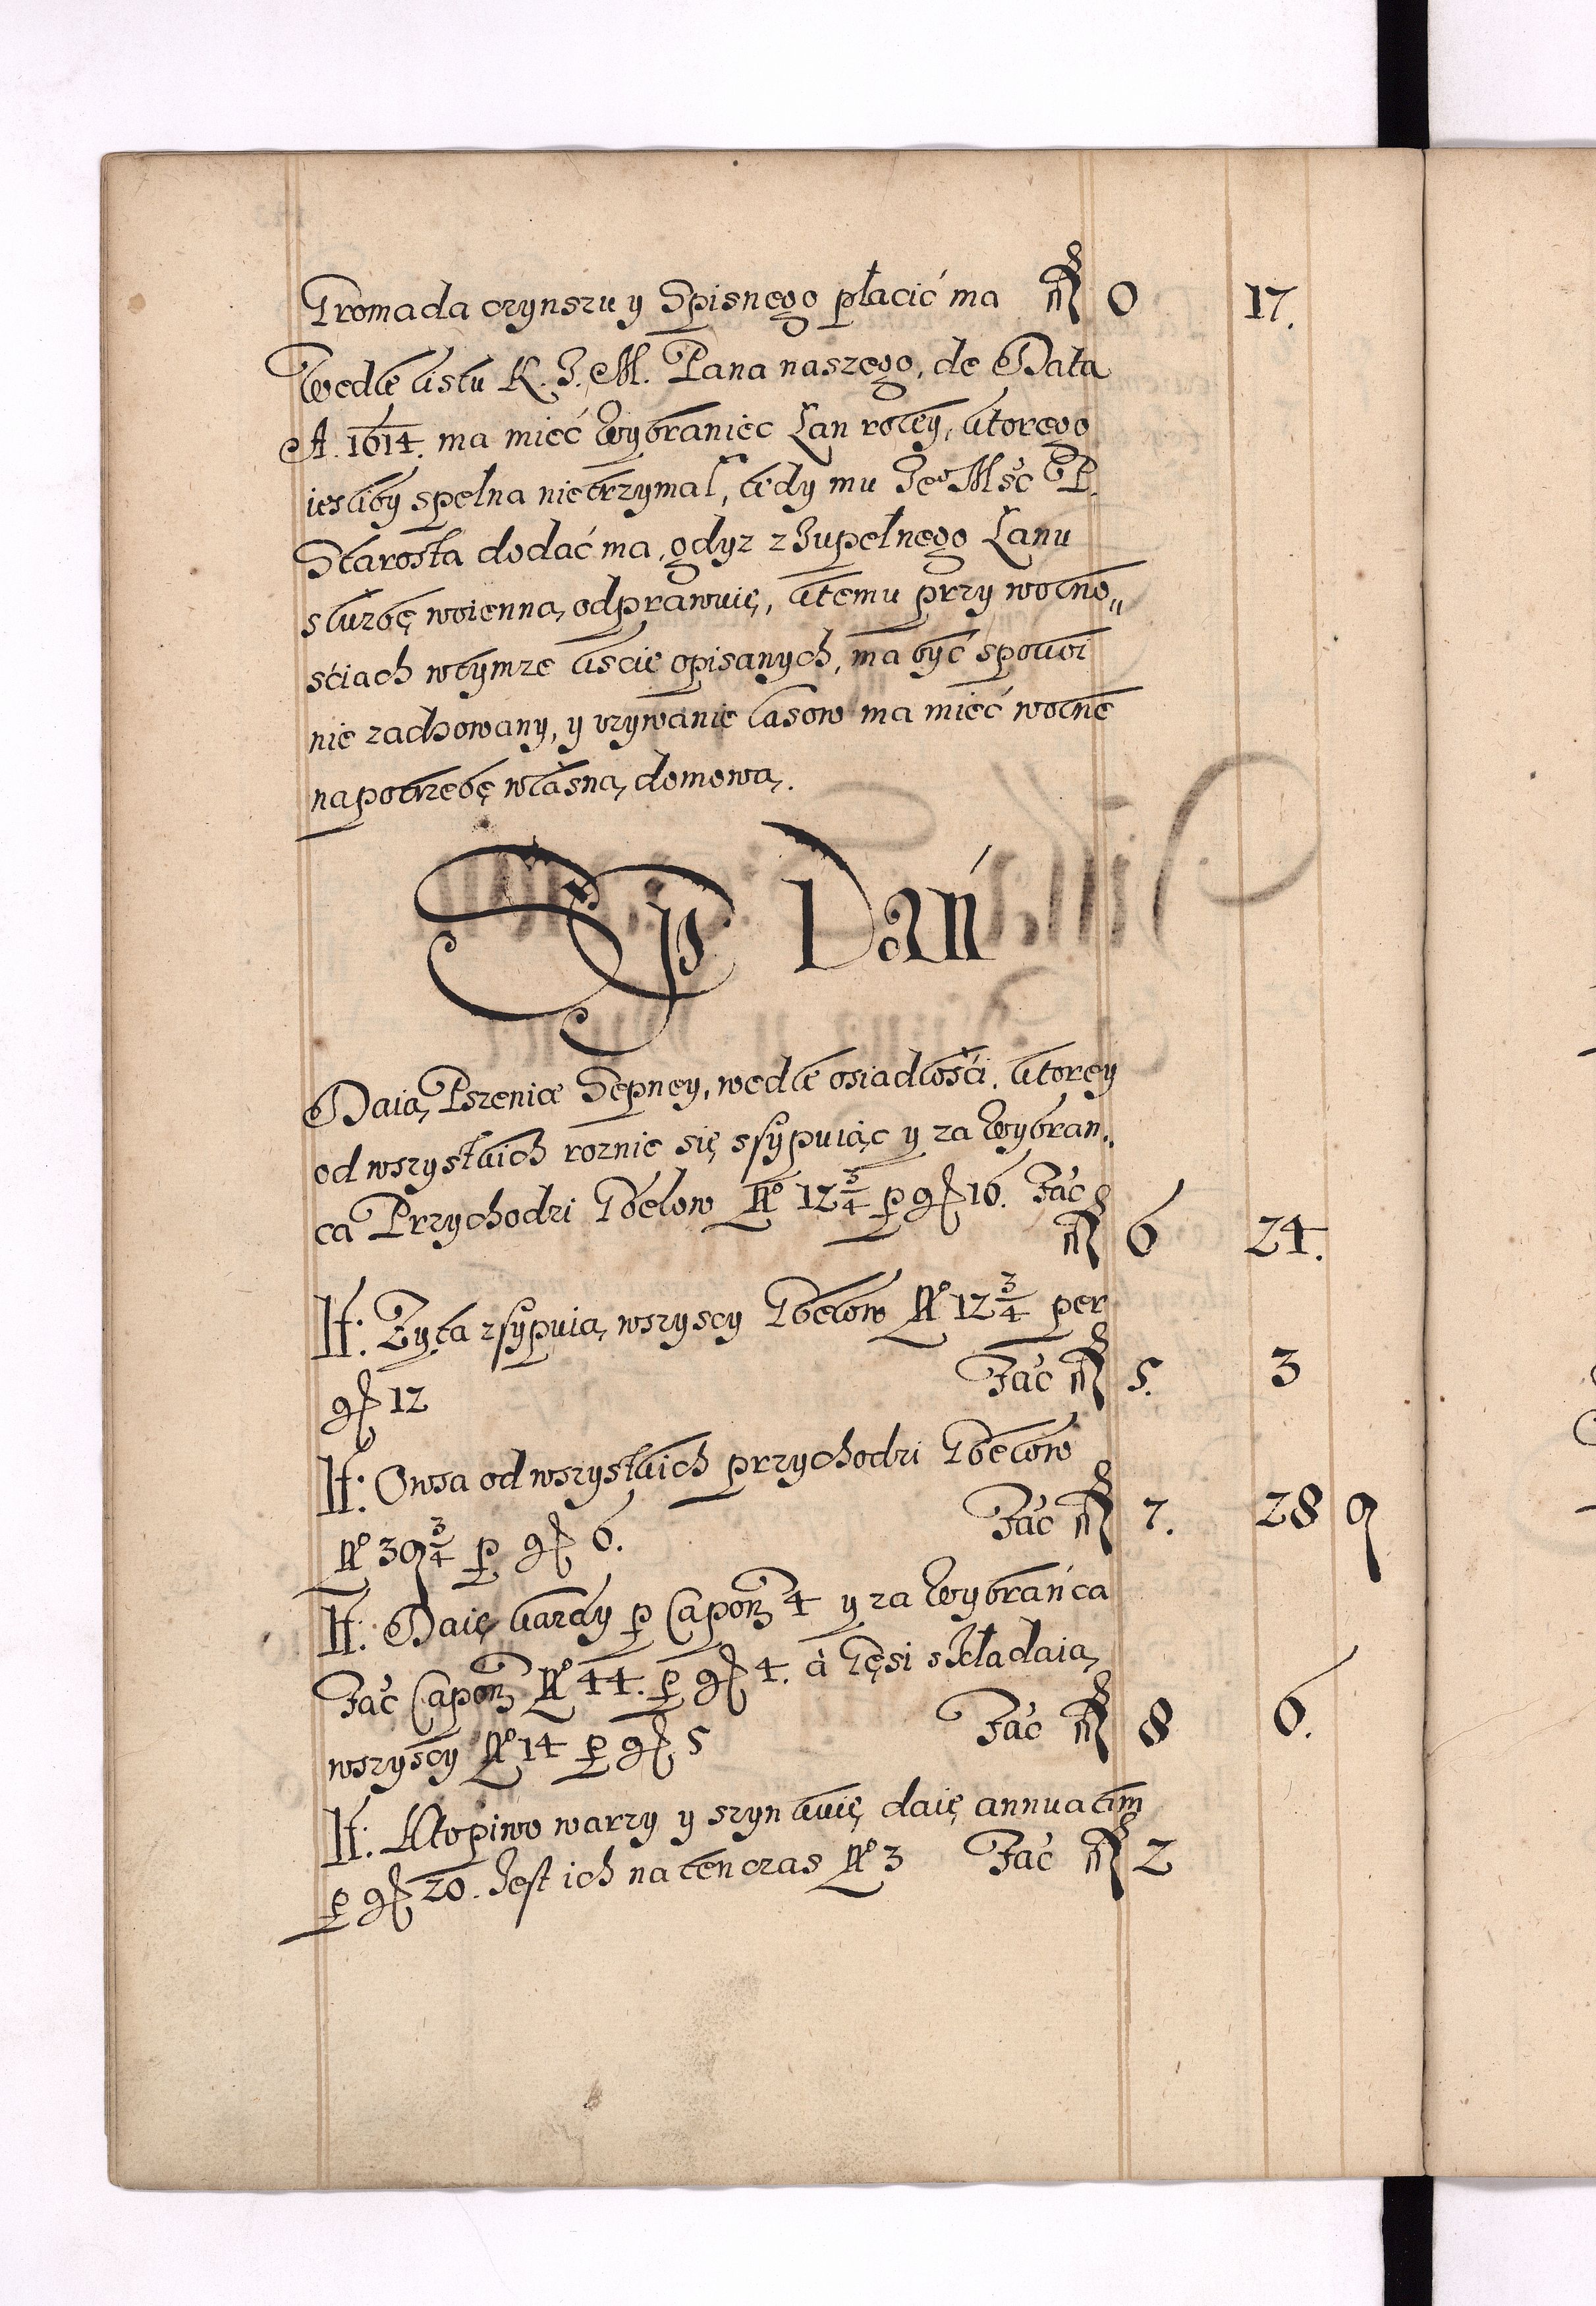 Gromada czynszu y Spisnego płacić ma fl 0 17.
Wedle listu K. J. M. Pana naszego, de Data
A. 1614. ma mieć Wybraniec Łan roley, ktorego
iesliby spełna nietrzymał, tedy mu Je° Mśc P.
Starosta dodać ma, gdyz z Zupełnego Łanu
sluzbę woienną odprawuie, ktemu przy wolno„
ściach wtymze liscie opisanych, ma być spokoi
nie zachowany, y vzywanie lasow ma mieć wolne
napotrzebę własną domową.
Sp Dań
Daią Pszenice Sepney, wedle osiadłości, ktorey
od wszystkich roznie się ssypuiąc y za Wybran„
ca Przychodzi Gbelow N° 12 3/4 p gr 16. Fac
fl 6 24.
It: Zyta zsypuią wszyscy Gbelow N° 12 3/4 per
gr 12 Fac fl 5. 3
It: Owsa od wszystkich przychodzi Gbelow
N° 39 3/4 p gr 6. Fac fl 7. 28 9
It: Daie kazdy p Capon 4 y za Wybrańca
Fac Capon N° 44. p gr 4. à Gęsi składaią
wszyscy N° 14 p gr 5 Fac fl 8 6.
It: Kto piwo warzy y szynkuie daie annuatim
p gr 20. Jest ich na ten czas N° 3 Fac fl 2